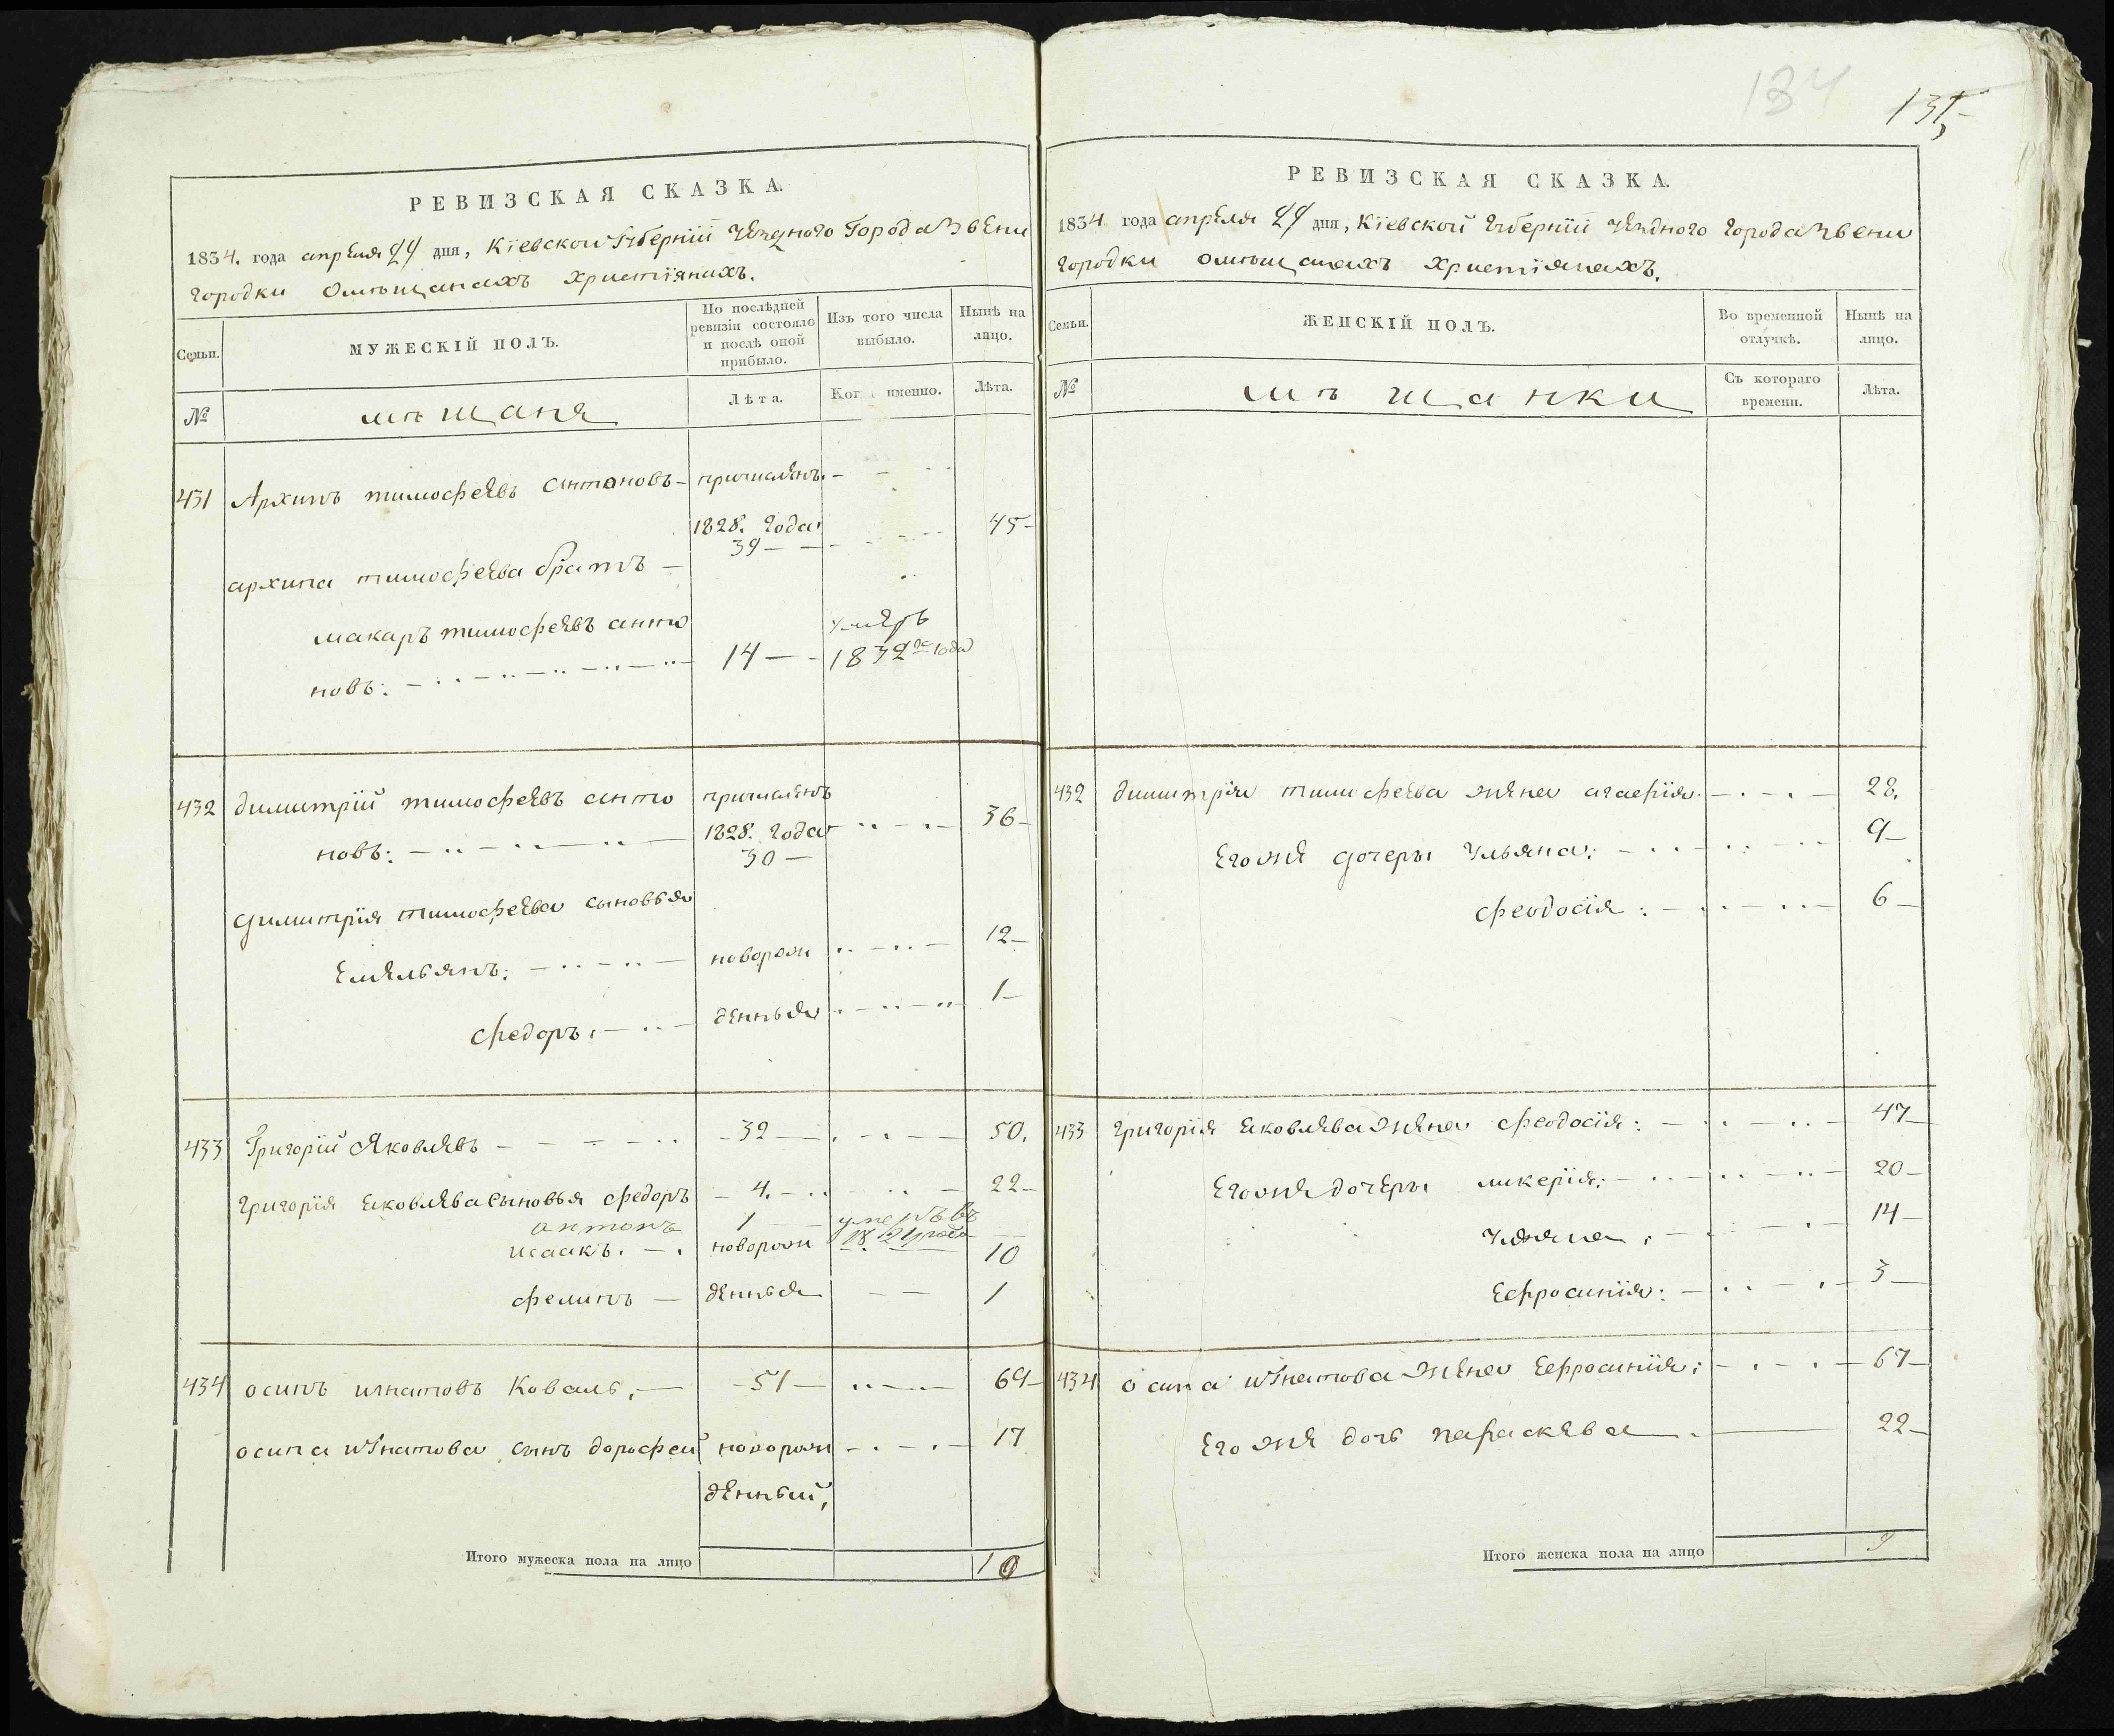 134
135
РЕВИЗСКАЯ СКАЗКА.
1834. года апреля 24 дня, Кіевской Губерніи уезднаго Города Звени
городки омѣщанахъ христіянахъ.
Семьи.
МУЖЕСКІЙ ПОЛЪ.
По послѣдней ревизіи состояло и послѣ оной прибыло.
Изъ того числа выбыло.
Нынѣ на лицо.
№
мѣщаня
Лѣта.
Когда именно.
Лѣта.
431 Архипъ тимофеевъ антоновъ - причисленъ
1828. года 39 45
архипа тимофеева братъ
макаръ тимофеевъ анто умеръ
новъ: 14 1832го года
432 димитрій тимофеевъ анто причисленъ
новъ: 1828. года 30 36
димитрія тимофеева сыновья
Емельянъ: новорож 12
федоръ. денныя 1
433 Григорій Яковлевъ 32 50.
григорія яковлева сыновья федоръ 4. 22
антонъ 1 умеръ въ
исаакъ. новорож 1824 года 10
филипъ денныя 1
434 осипъ игнатовъ коваль, 51 69
осипа игнатова сынъ дорофей новорож 17
денный,
Итого мужеска пола на лицо 10
РЕВИЗСКАЯ СКАЗКА.
1834. года апреля 24 дня, Кіевской Губерніи уезднаго города Звени
городки омѣщанахъ христіянахъ.
Семьи.
ЖЕНСКІЙ ПОЛЪ.
Во временной отлучкѣ.
Нынѣ на лицо.
№
мѣщанки
Съ котораго времени.
Лѣта.
432 димитрія тимофеева жена агафія 28.
Егоже дочеры ульяна: 9
феодосія: 6
433 григорія яковлева жена феодосія: 47
Егоже дочеры ликерія: 20
ульяна 14
Ефросинія: 3
434 осипа игнатова жена Ефросинія: 67
Егоже дочь параскева 22
Итого женска пола на лицо 9